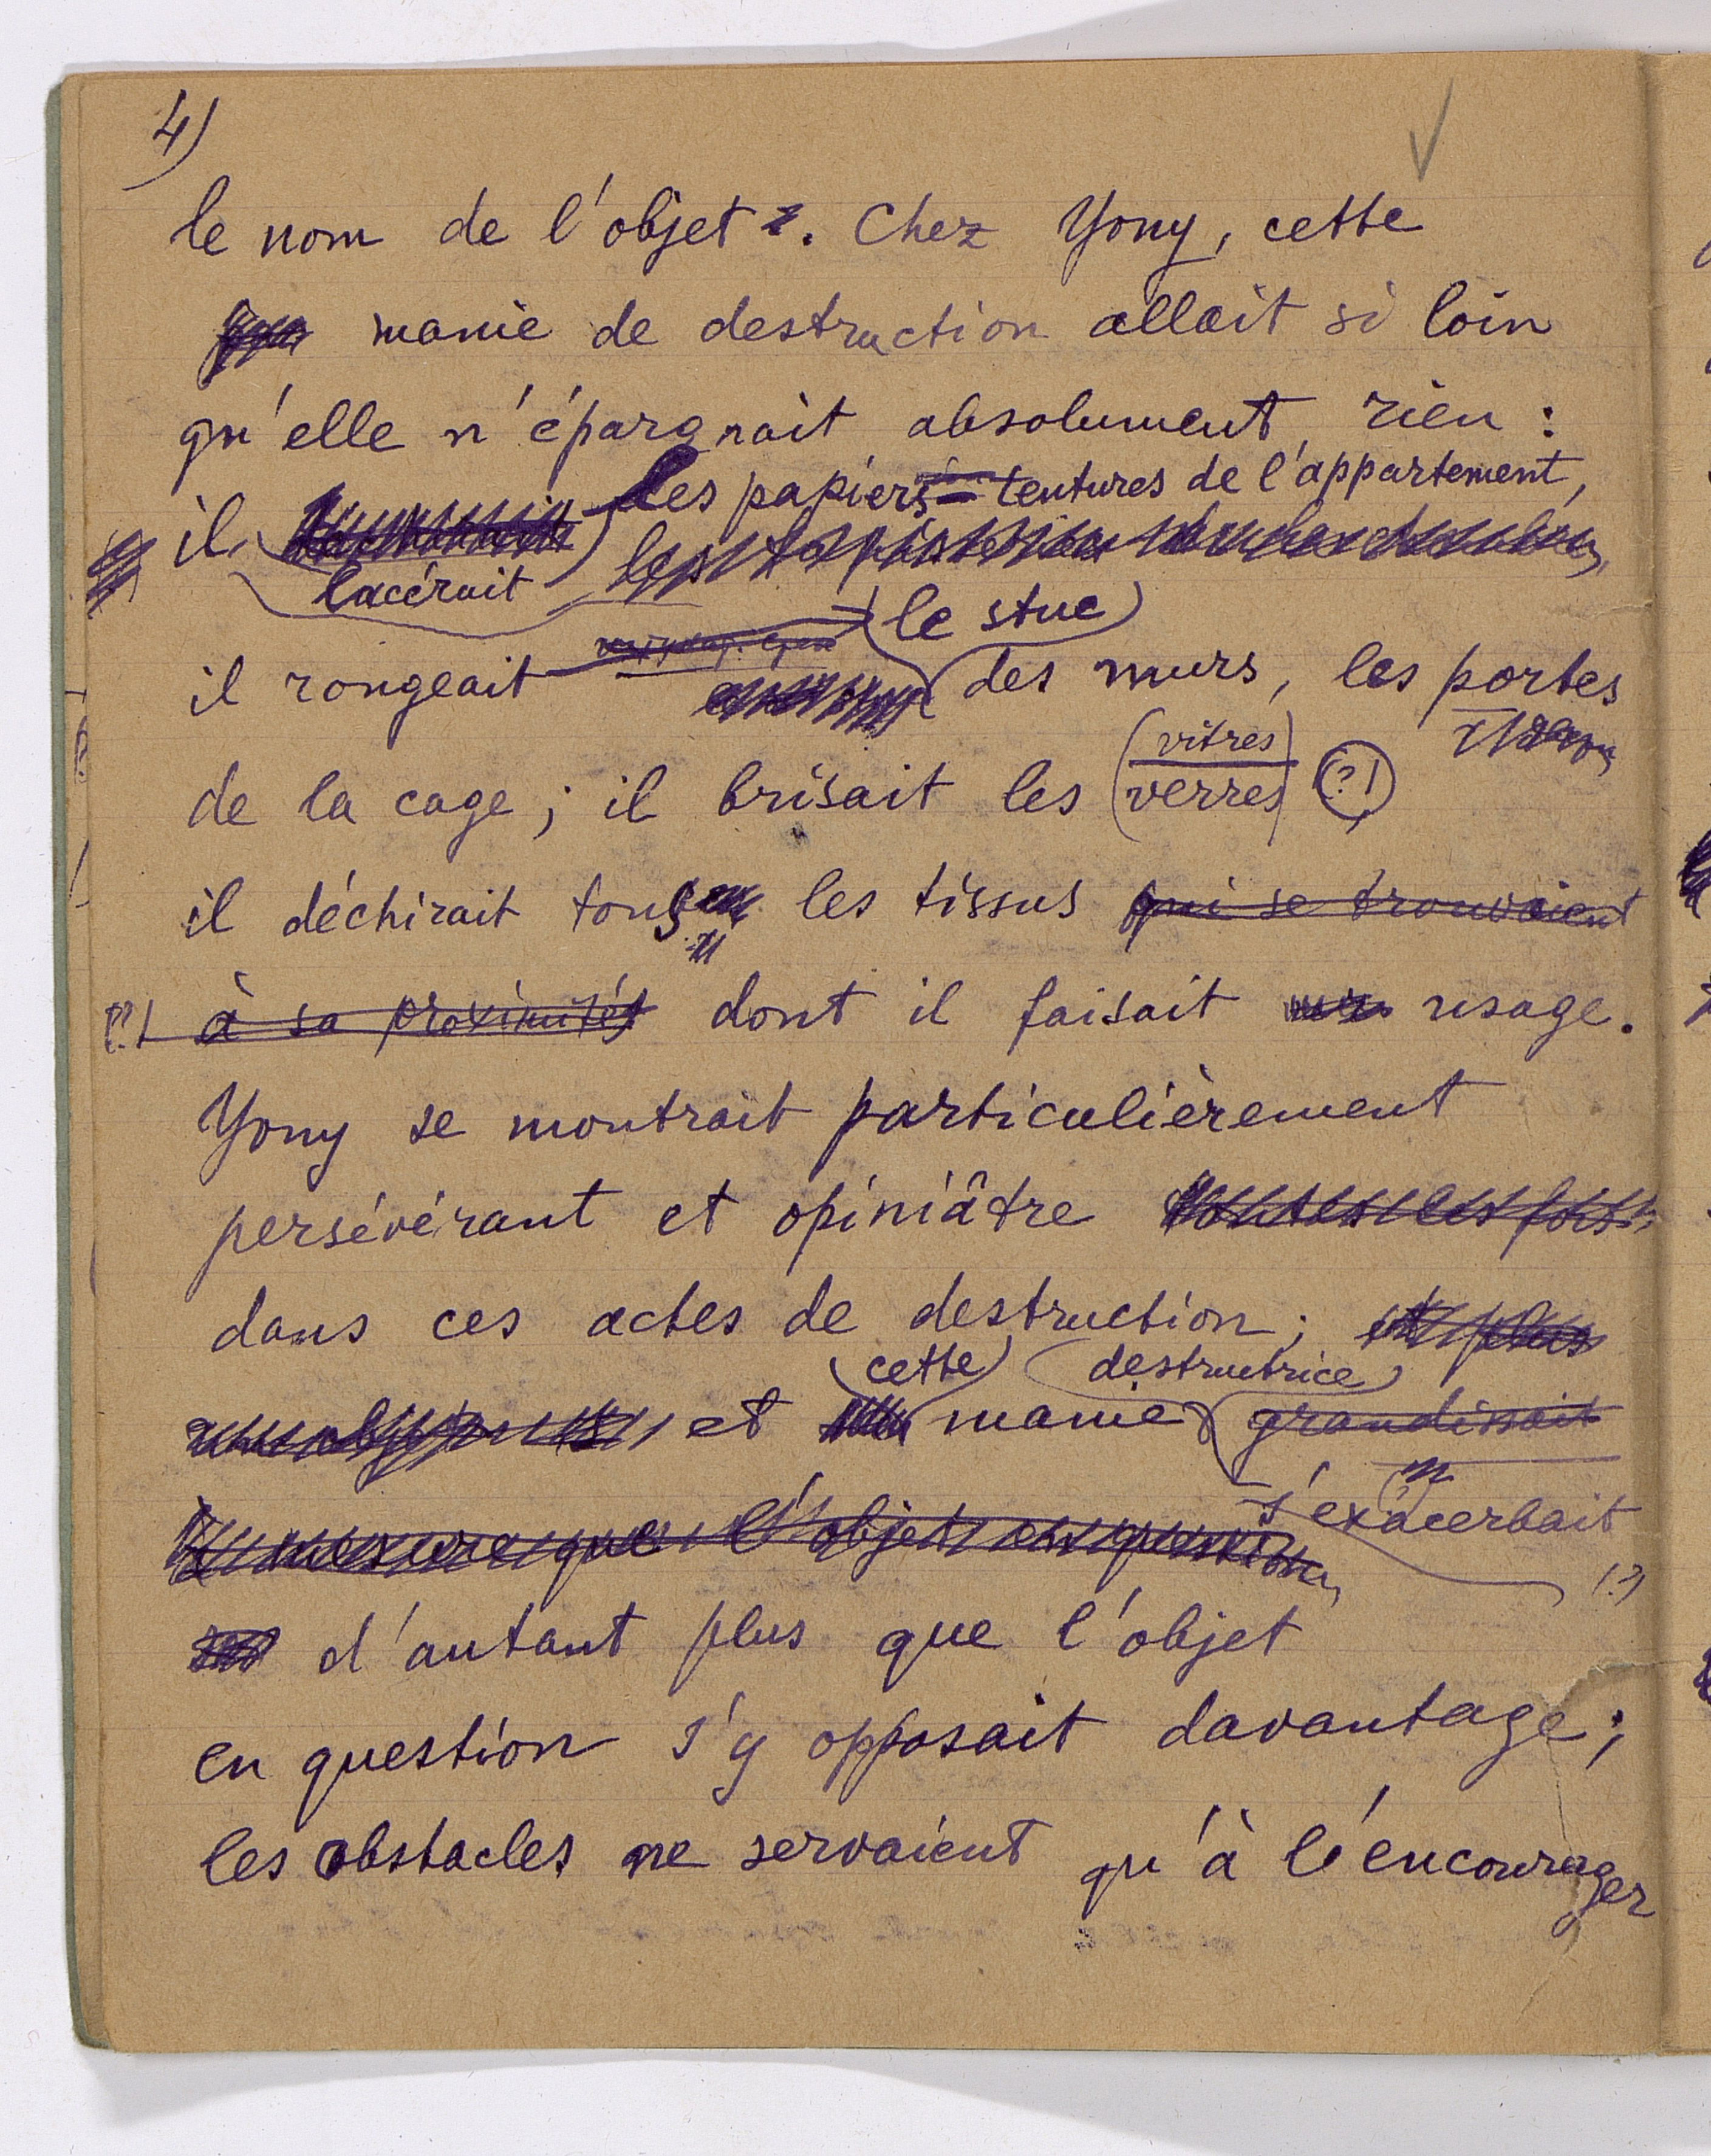 4)
le nom de l'objet. Chez Yony, cette
manie de destruction allait si loin
qu'elle n'épargnait absolument rien :
les papiers-tentures de l'appartement,
il
lacérait
le stuc
il rongeait des murs, les portes
vitres
de la cage ; il brisait les verres (?)
il déchirait tous les tissus qui se trouvaient
(?) à sa proximité dont il faisait usage.
Yony se montrait particulièrement
persévérant et opiniâtre toutes les fois
dans ces actes de destruction ; et plus
cette destructrice
et manie grandissait
s'exacerbait
à mesure que l'objet en question
(?)
d'autant plus que l'objet
en question s'y opposait davantage ;
les obstacles ne servaient qu'à l'encourager